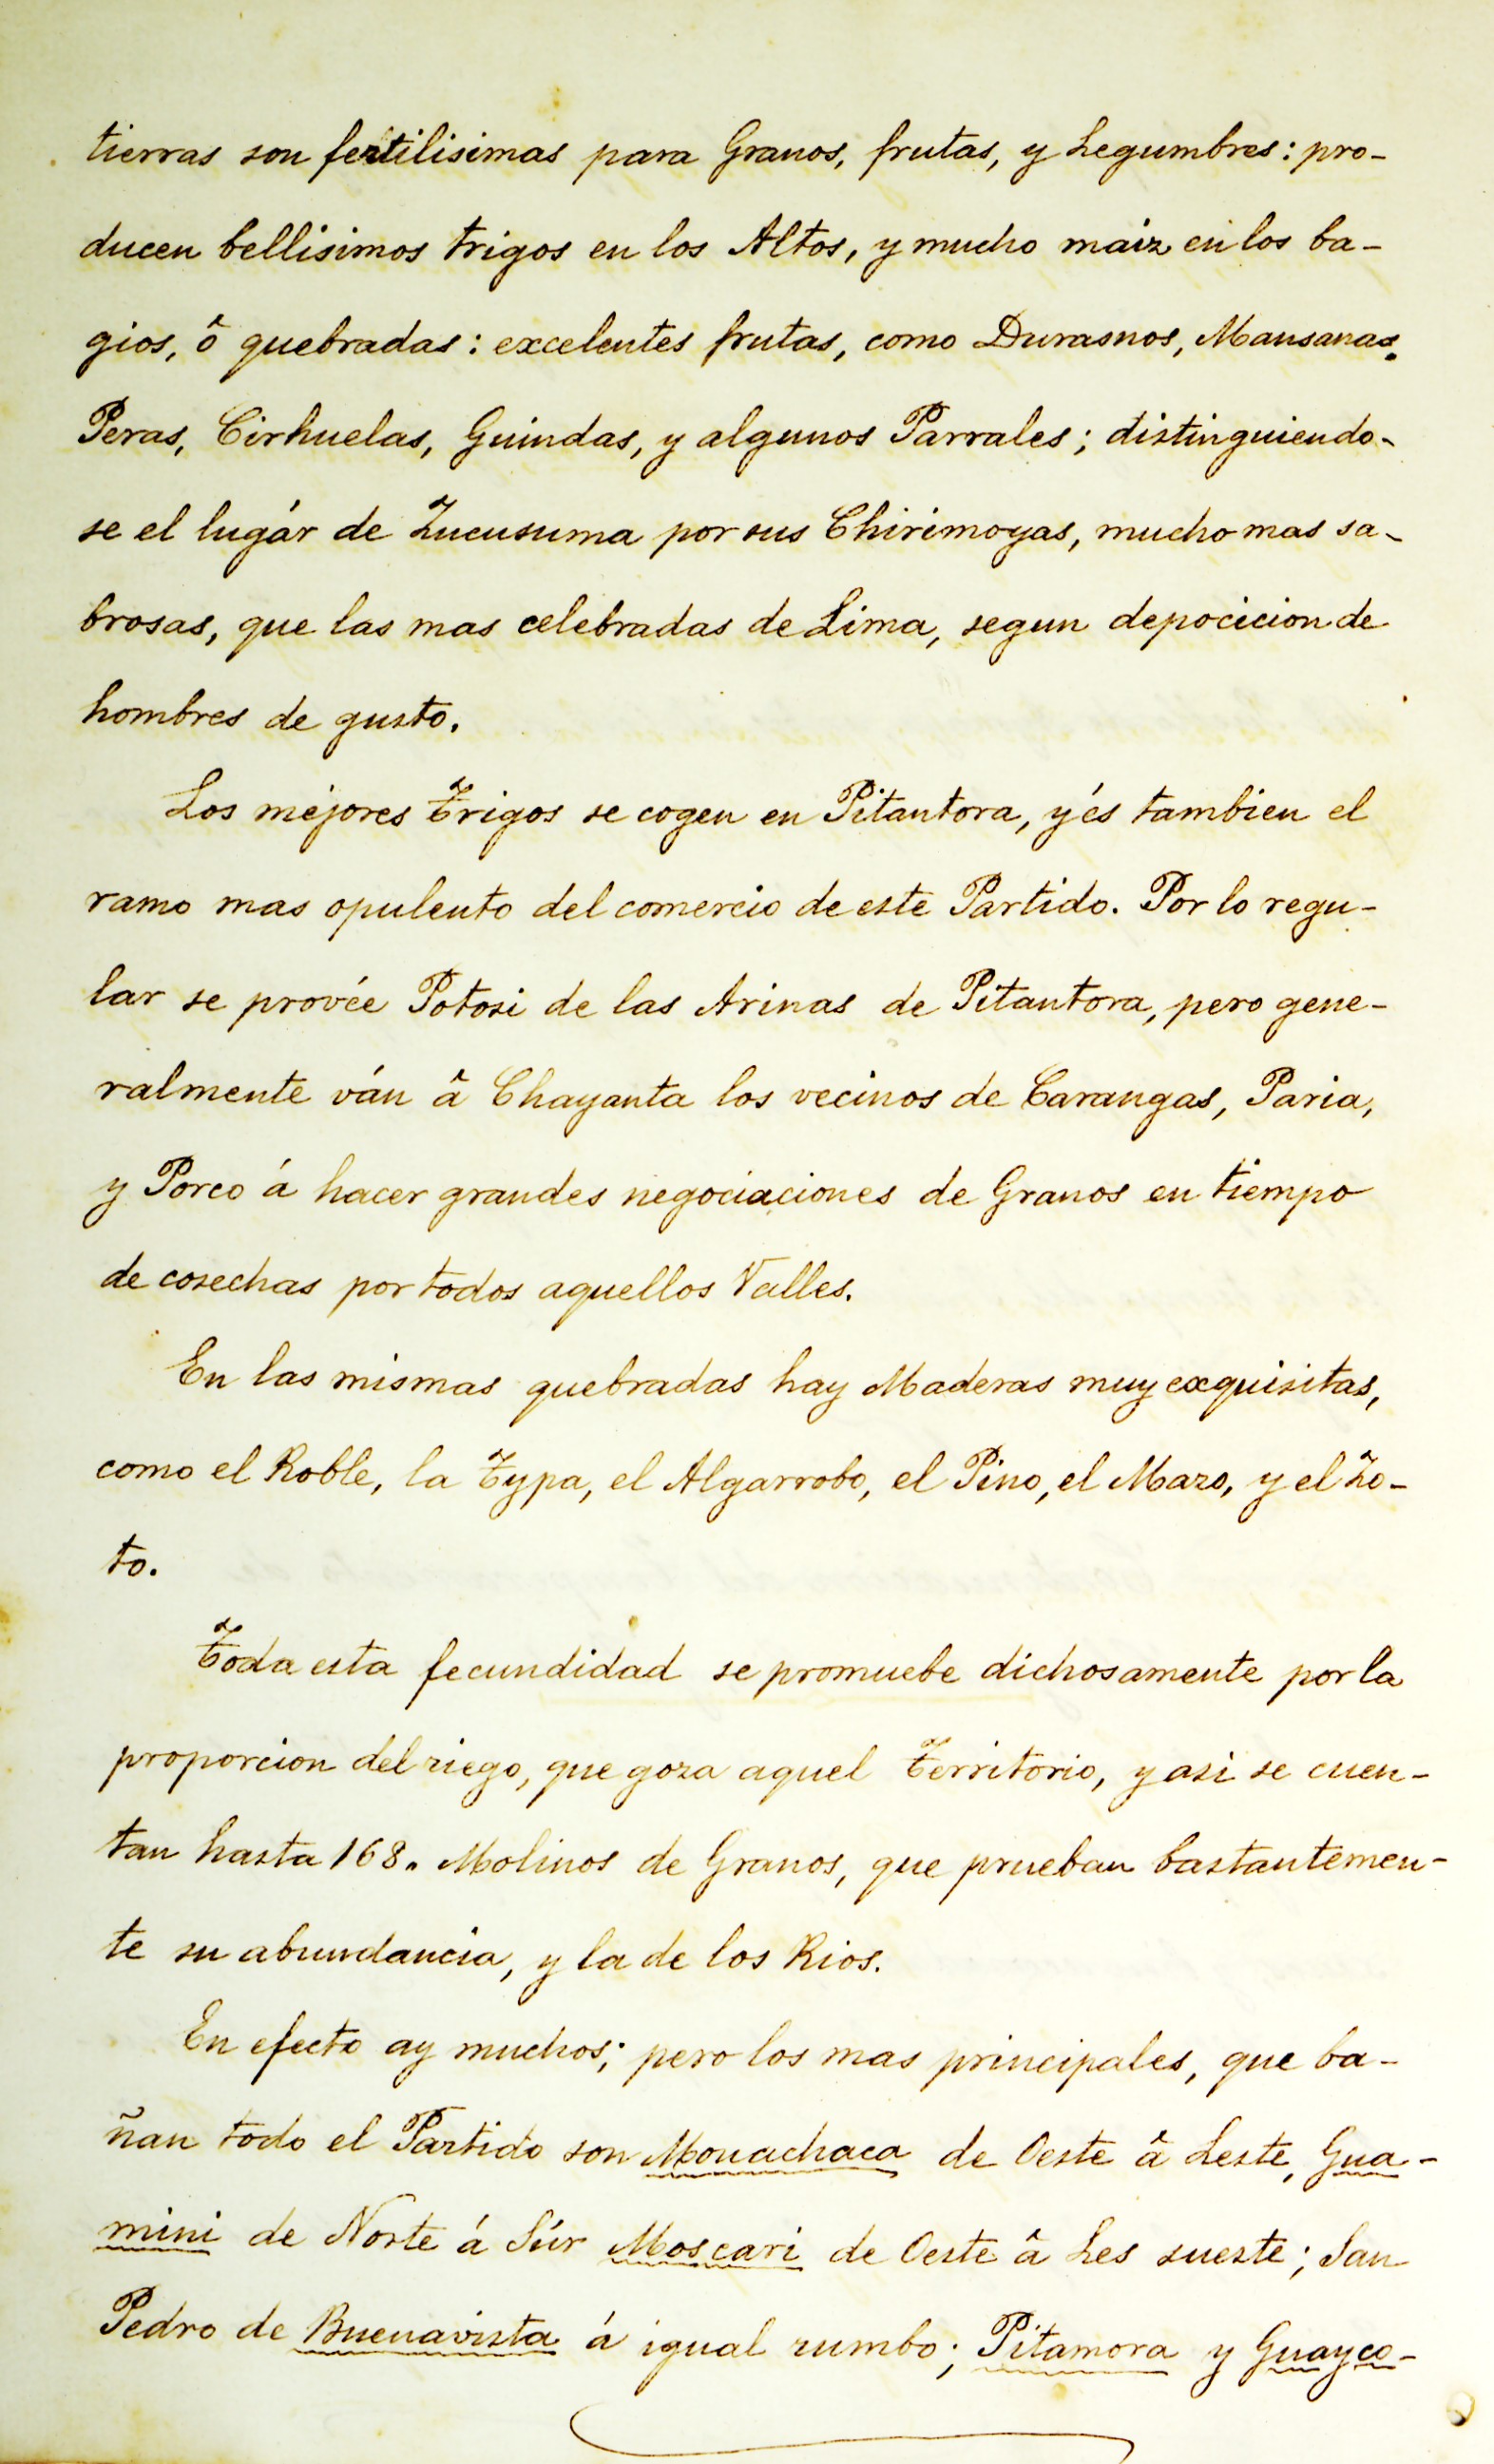 tierras son fertilisimas para Granos, frutas, y Legumbres: pro-
ducen bellisimos trigos en los Altos, y mucho maiz en los ba-
gios, ô quebradas: excelentes frutas, como Durasnos, Mansanas.
Peras, Cirhuelas, Guindas, y algunos Parrales; distinguiendo-
se el lugár de Zucusuma por sus Chirimoyas, mucho mas sa-
brosas, que las mas celebradas de Lima, segun depocicion de
hombres de gusto.
Los méjores Trigos se cogen en Pitantora, y és tambien el
ramo mas opulento del comercio de este Partido. Por lo regu-
lar se provée Potosi de las Arinas de Pitantora, pero gene-
ralmente ván â Chayanta los vecinos de Carangas, Paria,
y Porco á hacer grandes negociaciones de Granos en tiempo
de cosechas por todos aquellos Valles.
En las mismas quebradas hay Maderas muy exquisitas,
como el Roble, la Typa, el Algarrobo, el Pino, el Mazo, y el Zo-
to.
Toda esta fecundidad se promuebe dichosamente por la
proporcion del riego, que goza aquel Territorio, y asi se cuen-
tan hasta 168. Molinos de Granos, que prueban bastantemen-
te su abundancia, y la de los Rios.
En efecto ay muchos; pero los mas principales, que ba-
ñan todo el Partido son Monachaca de Oeste â Leste, Gua-
mini de Norte á Súr Moscari de Oeste â Les sueste; San
Pedro de Buenavista á igual rumbo; Pitamora y Guayco-